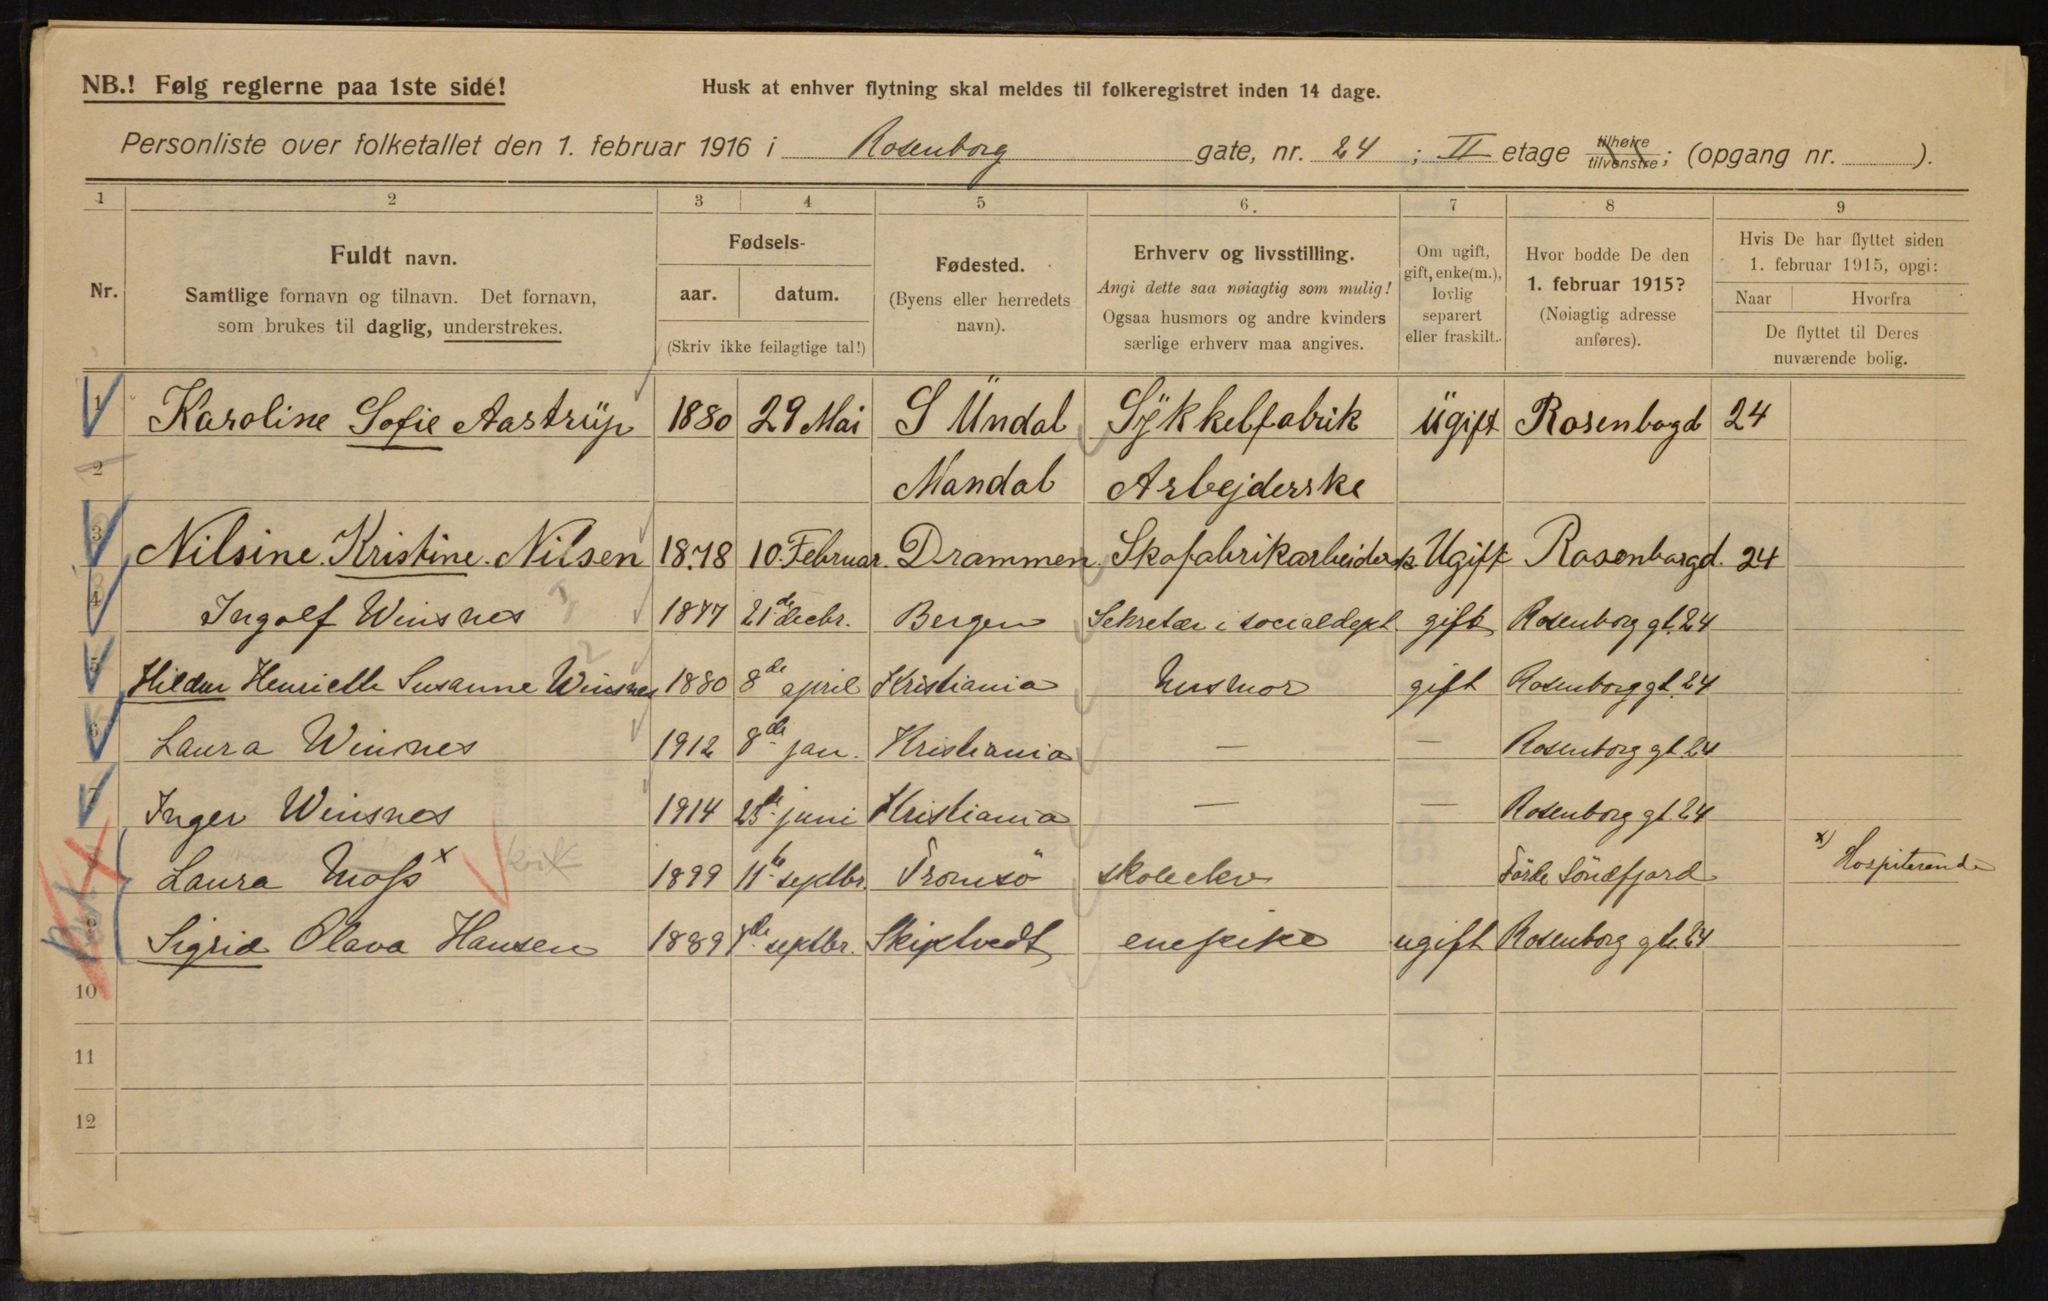 NB.! Følg reglerne paa 1ste side!
Husk at enhver flytning skal meldes til folkeregistret inden 14 dage.
Personliste over folketallet den 1. februar 1916 i Rosenborg gate, nr. 24 ; II etage tilhøire tilvenstre; (opgang nr. ).
1 2 3 4 5 6. 7 8 9
Nr.
Fuldt navn.
Samtlige fornavn og tilnavn. Det fornavn,
som brukes til daglig, understrekes.
Fødsels-
aar. datum.
(Skriv ikke feilagtige tal!)
Fødested.
(Byens eller herredets
navn).
Erhverv og livsstilling.
Angi dette saa nøiagtig som mulig!
Ogsaa husmors og andre kvinders
særlige erhverv maa angives.
Om ugift,
gift, enke(m.),
lovlig
separert
eller fraskilt.
Hvor bodde De den
1. februar 1915?
(Nøiagtig adresse
anføres).
Hvis De har flyttet siden
1. februar 1915, opgi:
Naar Hvorfra
De flyttet til Deres
nuværende bolig.
1 Karoline Sofie Aastrüp 1880 29 Mai S Ündal Sÿkkelfabrik ügift Rosenbogd 24
2 Mandal Arbejderske
3 Nilsine. Kristine. Nilsen 1878 10. Februar. Drammen. Skofabrikarbeidersk Ugift Rosenborgd. 24
4 Ingolf Winsnes 1877 21de decbr. Bergen Sekretær i socialdept. gift Rosenborg gt. 24
5 Hildur Henriette Susanne Winsnes 1880 8de april Kristiania Husmor gift Rosenborg gt. 24
6 Laura Winsnes 1912 8de jan. Kristiania — — Rosenborg gt. 24
7 Inger Winsnes 1914 25de juni Kristiania — — Rosenborg gt. 24
8 Laura Moss x 1899 11te septbr. Tromsö skoleelev Förde Söndfjord x) Hospiterende
9 Sigrid Olava Hansen 1889 7de septbr. Skiptvedt enepike ugift Rosenborg gt. 24
10
11
12